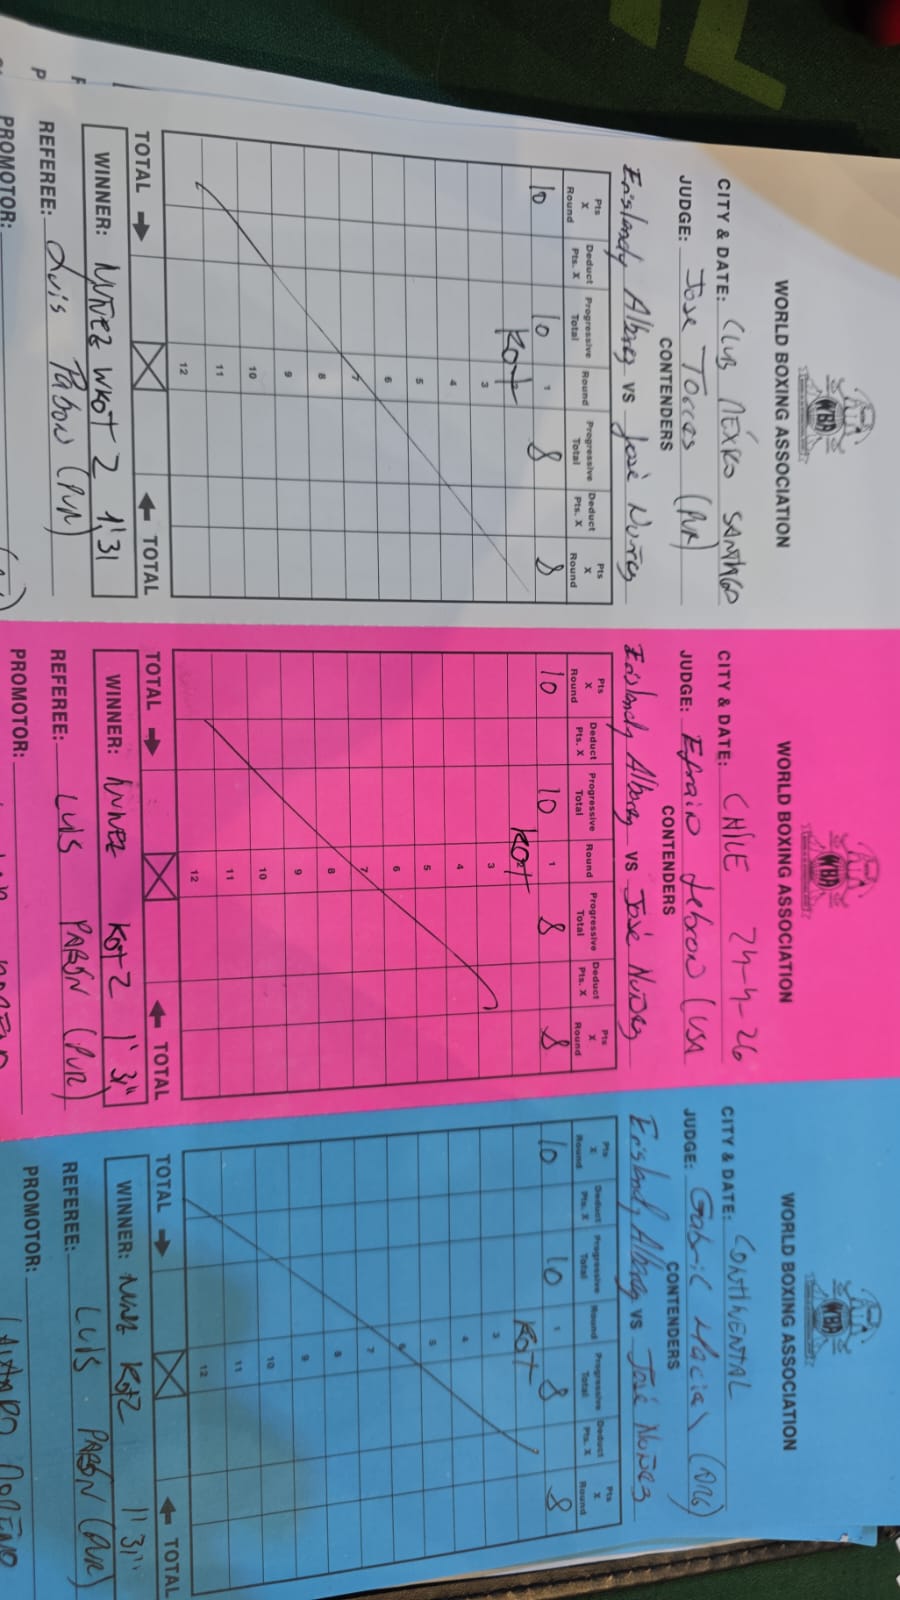 WORLD BOXING ASSOCIATION
WBA
CITY & DATE: CLUB MÉXICO SANTIAGO
JUDGE: Jose Torres (PUR)
CONTENDERS
Erislandy Alvarez VS José Nuñez
Pts X Round Deduct Pts. X Progressive Total Round Progressive Total Deduct Pts. X Pts X Round
10 10 1 8 8
KOT
3
4
5
6
7
8
9
10
11
12
TOTAL TOTAL
WINNER: NUÑEZ WKOT 2 1'31
REFEREE: Luis Pabon (PUR)
PROMOTOR:
WORLD BOXING ASSOCIATION
WBA
CITY & DATE: CHILE 24-4-26
JUDGE: Efrain Lebron (USA
CONTENDERS
Erislandy Alvarez VS José Nuñez
Pts X Round Deduct Pts. X Progressive Total Round Progressive Total Deduct Pts. X Pts X Round
10 10 1 8 8
KOT
3
4
5
6
7
8
9
10
11
12
TOTAL TOTAL
WINNER: NUÑEZ KOT 2 1'31"
REFEREE: LUIS PABÓN (PUR)
PROMOTOR:
WORLD BOXING ASSOCIATION
WBA
CITY & DATE: CONTINENTAL
JUDGE: Gabriel Macias (ARG)
CONTENDERS
Erislandy Alvarez VS José Nuñez
Pts X Round Deduct Pts. X Progressive Total Round Progressive Total Deduct Pts. X Pts X Round
10 10 1 8 8
KOT
3
4
5
6
7
8
9
10
11
12
TOTAL TOTAL
WINNER: NUÑEZ KOT2 1'31"
REFEREE: LUIS PABÓN (PUR)
PROMOTOR: